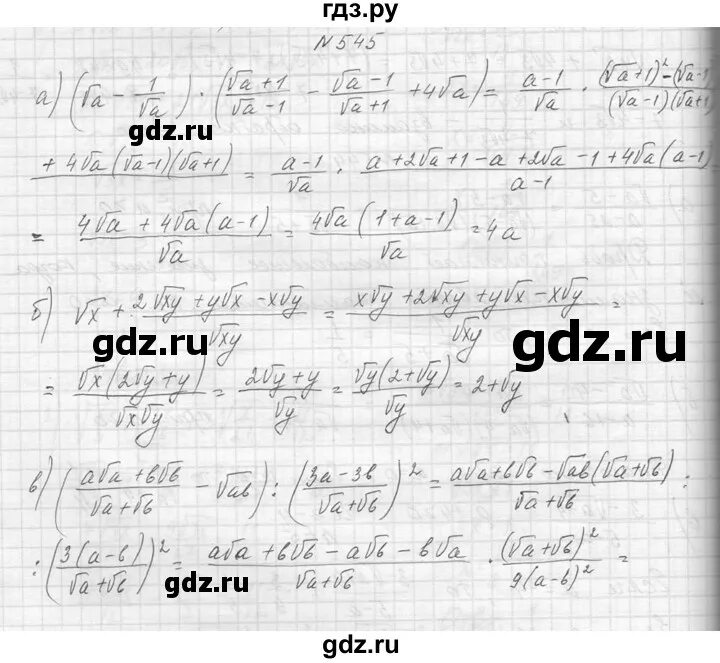 гдз.ру
N 545
а) (√a − 1/√a) · ((√a+1)/(√a−1) − (√a−1)/(√a+1) + 4√a) = (a−1)/√a · ((√a+1)² − (√a−1)
(√a−1)(√a+1)
+ 4√a(√a−1)(√a+1) = (a−1)/√a · (a+2√a+1−a+2√a−1+4√a(a−1))/(a−1) =
= (4√a + 4√a(a−1))/√a = 4√a(1+a−1)/√a = 4a
б) √x + (2√xy + y√x − x√y)/√xy = (x√y + 2√xy + y√x − x√y)/√xy =
= √x(2√y + y)/(√x√y) = (2√y + y)/√y = √y(2+√y)/√y = 2+√y
в) ((a√a + b√b)/(√a+√b) − √ab) : ((3a−3b)/(√a+√b))² = (a√a+b√b−√ab(√a+√b))/(√a+√b) :
: (3(a−b)/(√a+√b))² = (a√a + b√b − a√b − b√a)/(√a+√b) · (√a+√b)²/9(a−b)² =
gdz.ru
gdz.ru
gdz.ru
gdz.ru
gdz.ru